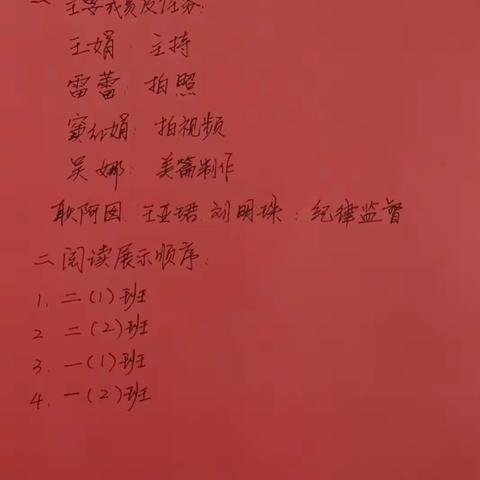 一 主要成员及任务:
王娟: 主持
雷蕾: 拍照
窦红娟: 拍视频
吴娜: 美篇制作
耿阿囡 王亚珺 刘明珠: 纪律监督
二 阅读展示顺序:
1. 二(1)班
2 二(2)班
3. 一(1)班
4. 一(2)班